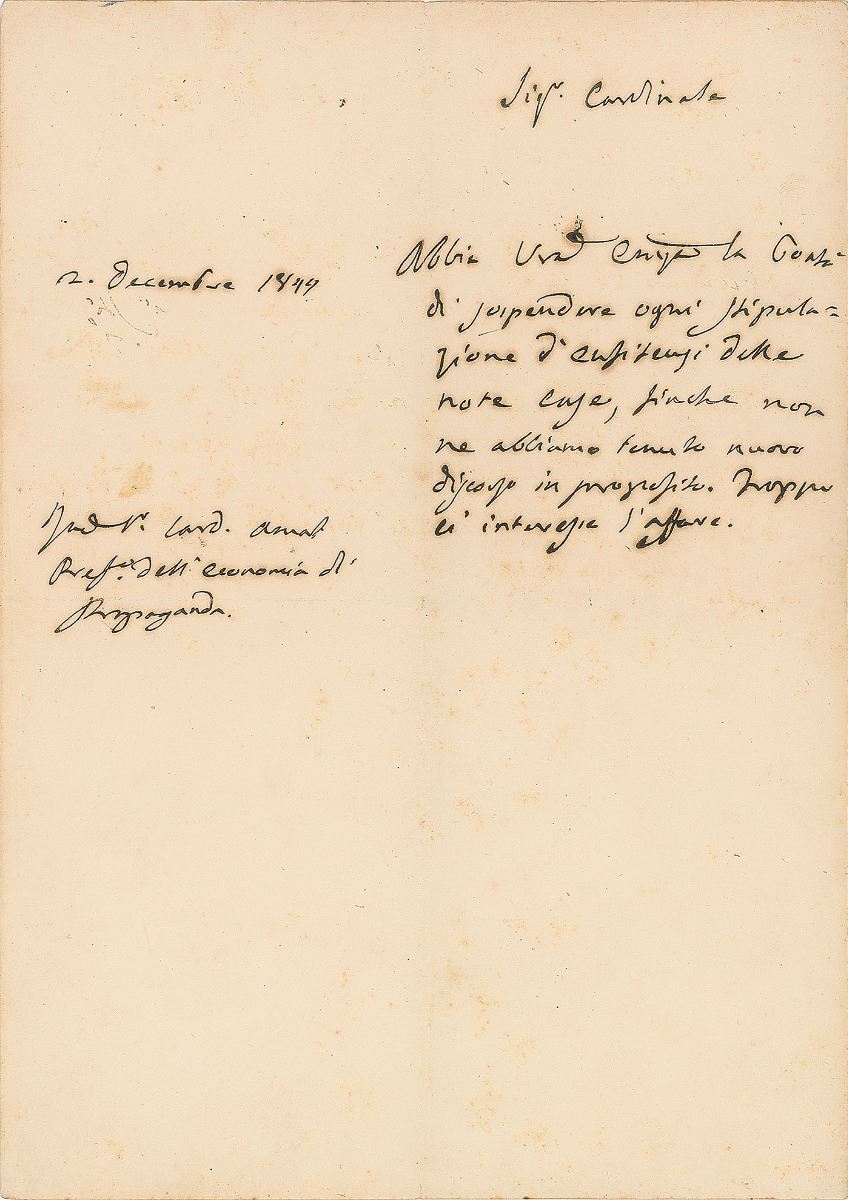 Sigr. Cardinale
2. Decembre 1844
Abbia Vra Emza la bontà
di sospendere ogni stipula=
zione d'enfiteusi delle
note case, finche non
ne abbiamo tenuto nuovo
discorso in proposito. Troppo
ci interessa l'affare.
Sr. Card. Amat
Prefo. dell'economia di
Propaganda.